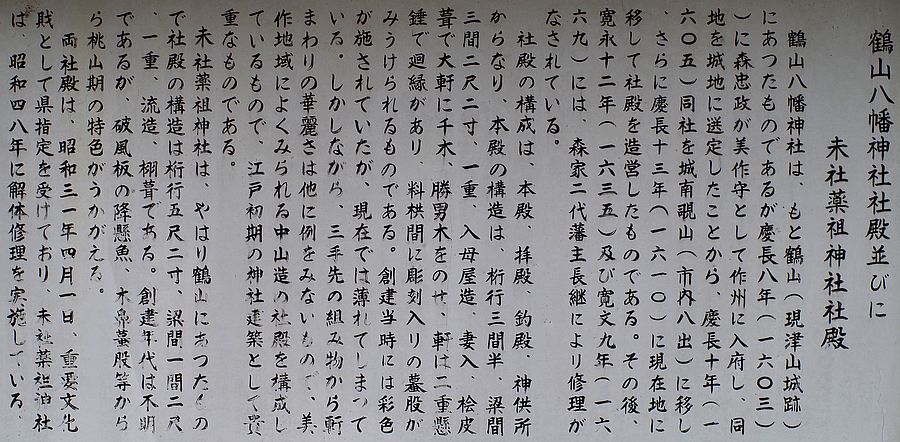 鶴山八幡神社社殿並びに
末社薬祖神社社殿
鶴山八幡神社は、もと鶴山(現津山城跡)
にあつたものであるが慶長八年(一六〇三
)に森忠政が美作守として作州に入府し、同
地を城地に送定したことから、慶長十年(一
六〇五)同社を城南覗山(市内八出)に移し
、さらに慶長十三年(一六一〇)に現在地に
移して社殿を造営したものである。その後、
寛永十二年(一六三五)及び寛文九年(一六
六九)には、森家二代藩主長継により修理が
なされている。
社殿の構成は、本殿、拝殿、釣殿、神供所
からなり、本殿の構造は、桁行三間半、梁間
三間二尺二寸、一重、入母屋造、妻入、桧皮
葺で大軒に千木、勝男木をのせ、軒は二重懸
錘で廻縁があり、料栱間に彫刻入りの蟇股が
みうけられるものである。創建当時には彩色
が施されていたが、現在では薄れてしまつて
いる。しかしながら、三手先の組み物から軒
まわりの華麗さは他に例をみないもので、美
作地域によくみられる中山造の社殿を構成し
ているもので、江戸初期の神社建築として貴
重なものである。
末社薬祖神社は、やはり鶴山にあつたもの
で社殿の構造は桁行五尺二寸、梁間一間二尺
、一重、流造、栩葺である。創建年代は不明
であるが、破風板の降懸魚、木鼻蟇股等から
ら桃山期の特色がうかがえる。
両社殿は、昭和三一年四月一日、重要文化
財として県指定を受けており、末社薬祖泊社
は、昭和四八年に解体修理を実施している。